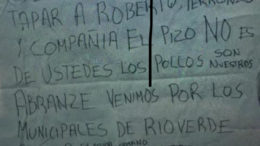 TAPAR A ROBERTO, TERRONES
Y COMPAÑIA EL PIZO NO ES
DE USTEDES LOS POLLOS SON NUESTROS
ABRANZE VENIMOS POR LOS
MUNICIPALES DE RIOVERDE